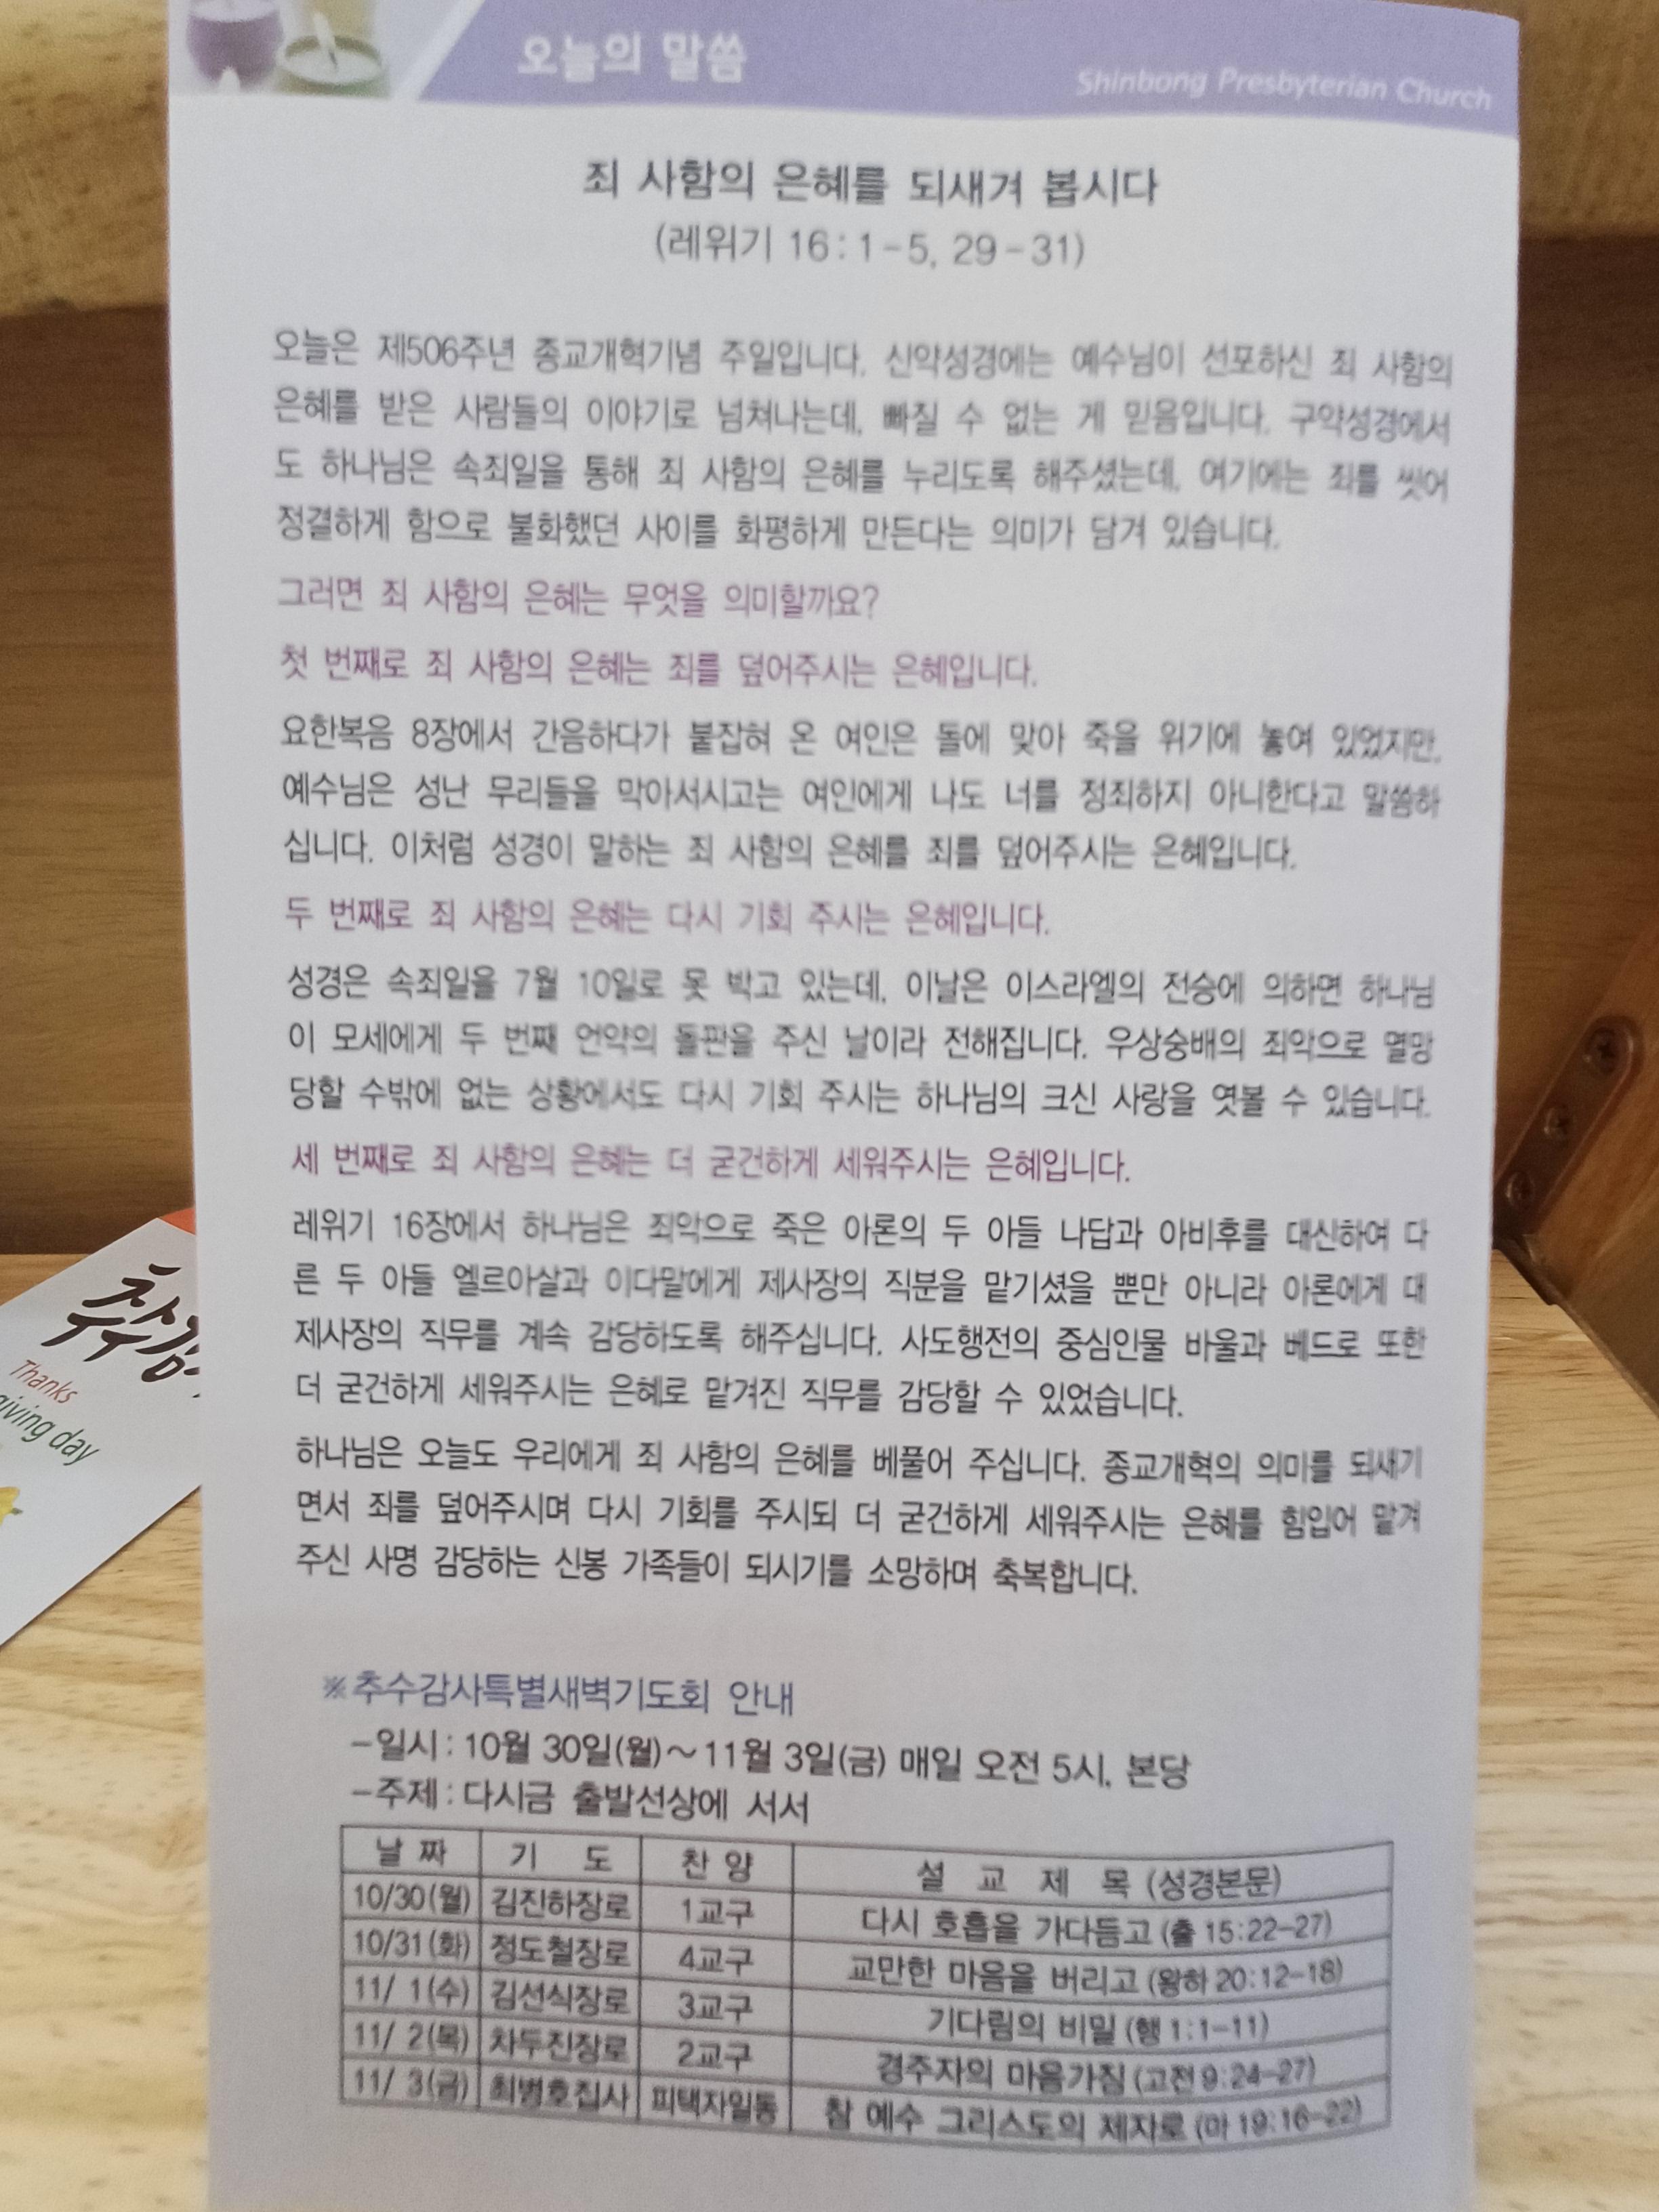 오늘의 말씀
Shinbong Presbyterian Church
죄 사함의 은혜를 되새겨 봅시다
(레위기 16:1-5, 29-31)
오늘은 제506주년 종교개혁기념 주일입니다. 신약성경에는 예수님이 선포하신 죄 사함의
은혜를 받은 사람들의 이야기로 넘쳐나는데, 빠질 수 없는 게 믿음입니다. 구약성경에서
도 하나님은 속죄일을 통해 죄 사함의 은혜를 누리도록 해주셨는데, 여기에는 죄를 씻어
정결하게 함으로 불화했던 사이를 화평하게 만든다는 의미가 담겨 있습니다.
그러면 죄 사함의 은혜는 무엇을 의미할까요?
첫 번째로 죄 사함의 은혜는 죄를 덮어주시는 은혜입니다.
요한복음 8장에서 간음하다가 붙잡혀 온 여인은 돌에 맞아 죽을 위기에 놓여 있었지만,
예수님은 성난 무리들을 막아서시고는 여인에게 나도 너를 정죄하지 아니한다고 말씀하
십니다. 이처럼 성경이 말하는 죄 사함의 은혜를 죄를 덮어주시는 은혜입니다.
두 번째로 죄 사함의 은혜는 다시 기회 주시는 은혜입니다.
성경은 속죄일을 7월 10일로 못 박고 있는데, 이날은 이스라엘의 전승에 의하면 하나님
이 모세에게 두 번째 언약의 돌판을 주신 날이라 전해집니다. 우상숭배의 죄악으로 멸망
당할 수밖에 없는 상황에서도 다시 기회 주시는 하나님의 크신 사랑을 엿볼 수 있습니다.
세 번째로 죄 사함의 은혜는 더 굳건하게 세워주시는 은혜입니다.
레위기 16장에서 하나님은 죄악으로 죽은 아론의 두 아들 나답과 아비후를 대신하여 다
른 두 아들 엘르아살과 이다말에게 제사장의 직분을 맡기셨을 뿐만 아니라 아론에게 대
제사장의 직무를 계속 감당하도록 해주십니다. 사도행전의 중심인물 바울과 베드로 또한
더 굳건하게 세워주시는 은혜로 맡겨진 직무를 감당할 수 있었습니다.
하나님은 오늘도 우리에게 죄 사함의 은혜를 베풀어 주십니다. 종교개혁의 의미를 되새기
면서 죄를 덮어주시며 다시 기회를 주시되 더 굳건하게 세워주시는 은혜를 힘입어 맡겨
주신 사명 감당하는 신봉 가족들이 되시기를 소망하며 축복합니다.
※추수감사특별새벽기도회 안내
-일시: 10월 30일(월)~11월 3일(금) 매일 오전 5시, 본당
-주제: 다시금 출발선상에 서서
날 짜 기 도 찬 양 설 교 제 목 (성경본문)
10/30(월) 김진하장로 1교구 다시 호흡을 가다듬고 (출 15:22-27)
10/31(화) 정도철장로 4교구 교만한 마음을 버리고 (왕하 20:12-18)
11/ 1(수) 김선식장로 3교구 기다림의 비밀 (행 1:1-11)
11/ 2(목) 차두진장로 2교구 경주자의 마음가짐 (고전 9:24-27)
11/ 3(금) 최병호집사 피택자일동 참 예수 그리스도의 제자로 (마 19:16-22)
Thanks
giving day